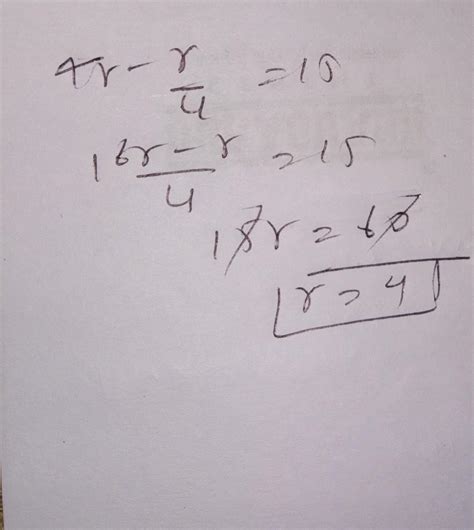 4r - r/4 = 15
16r - r/4 = 15
15r = 60
r = 4